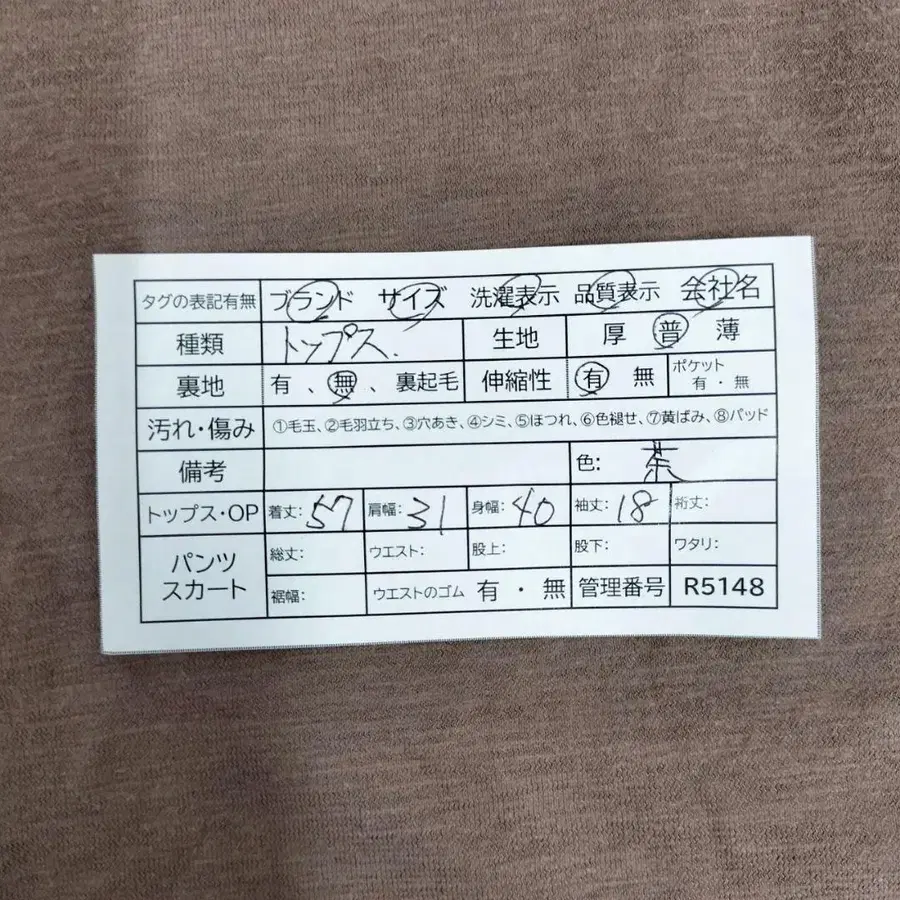 タグの表記有無 ブランド サイズ 洗濯表示 品質表示 会社名
種類 トップス. 生地 厚 普 薄
裏地 有 、無 、裏起毛 伸縮性 有 無 ポケット 有 ・ 無
汚れ・傷み ①毛玉、②毛羽立ち、③穴あき、④シミ、⑤ほつれ、⑥色褪せ、⑦黄ばみ、⑧パッド
備考 色: 茶
トップス・OP 着丈: 57 肩幅: 31 身幅: 40 袖丈: 18 裄丈:
パンツ スカート 総丈: ウエスト: 股上: 股下: ワタリ:
裾幅: ウエストのゴム 有 ・ 無 管理番号 R5148